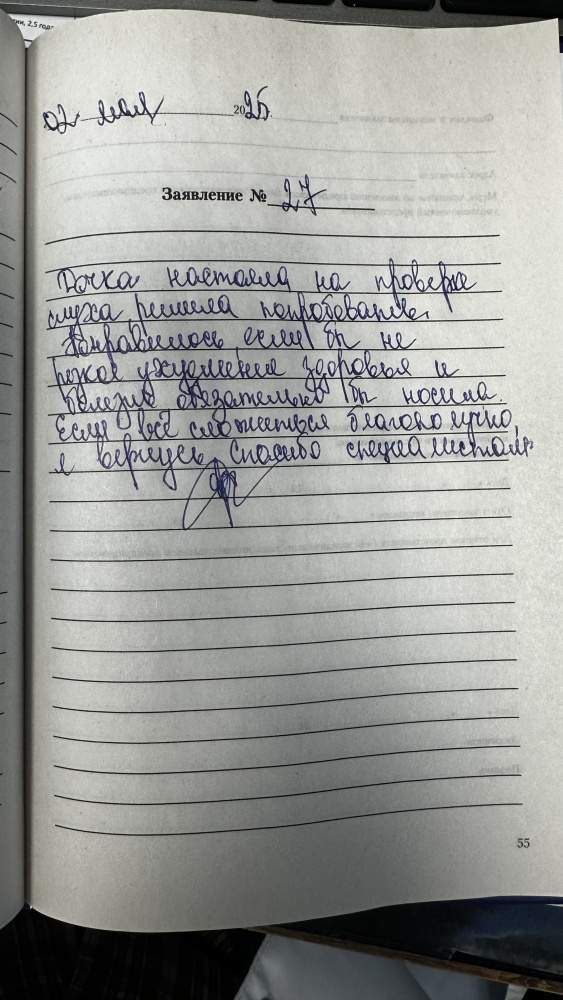 ии, 2,5 года
02 мая 2025.
Заявление № 27
Дочка настояла на проверке
слуха решила попробовать.
Понравилось если бы не
резкое ухудшение здоровья и
болезнь обязательно бы носила.
Если всё сложиться благополучно,
я вернусь. Спасибо специалистам.
55